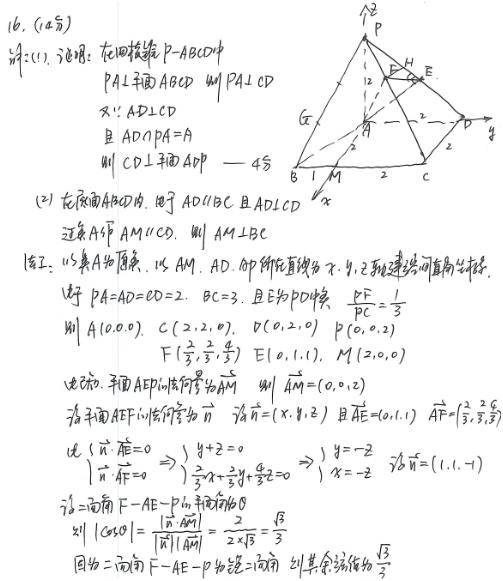 16. (14分)
解:(1). 证明: 在四棱锥 P-ABCD中
PA⊥平面ABCD 则 PA⊥CD
又∵ AD⊥CD
且 AD∩PA=A
则 CD⊥平面ADP —— 4分
(2) 在底面ABCD内. 由于 AD∥BC 且 AD⊥CD
过点A作 AM∥CD. 则 AM⊥BC
法I: 以点A为原点. 以 AM. AD. AP 所在直线为 x. y. z 轴建空间直角坐标系.
由于 PA=AD=CD=2. BC=3. 且E为PD中点 PF/PC=1/3
则 A(0.0.0). C(2,2,0). D(0,2,0) P(0.0.2)
F(2/3,2/3,4/3) E(0,1.1). M(2,0,0)
平面AEP的法向量为AM 则 AM=(0,0,2)
设平面AEF的法向量为n 设n=(x,y,z) 且AE=(0,1.1) AF=(2/3,2/3,4/3)
由 { n·AE=0 n·AF=0 ⇒ { y+z=0 2/3x+2/3y+4/3z=0 ⇒ { y=-z x=-z 设n=(1.1.-1)
设二面角 F-AE-P的平面角为θ
则 |cosθ|=|n·AM|/|n||AM|=2/2×√3=√3/3
因为二面角 F-AE-P为锐二面角 则其余弦值为√3/3
z
P
H
F
E
G
2
A
2
D
y
2
2
B
1
M
2
C
x